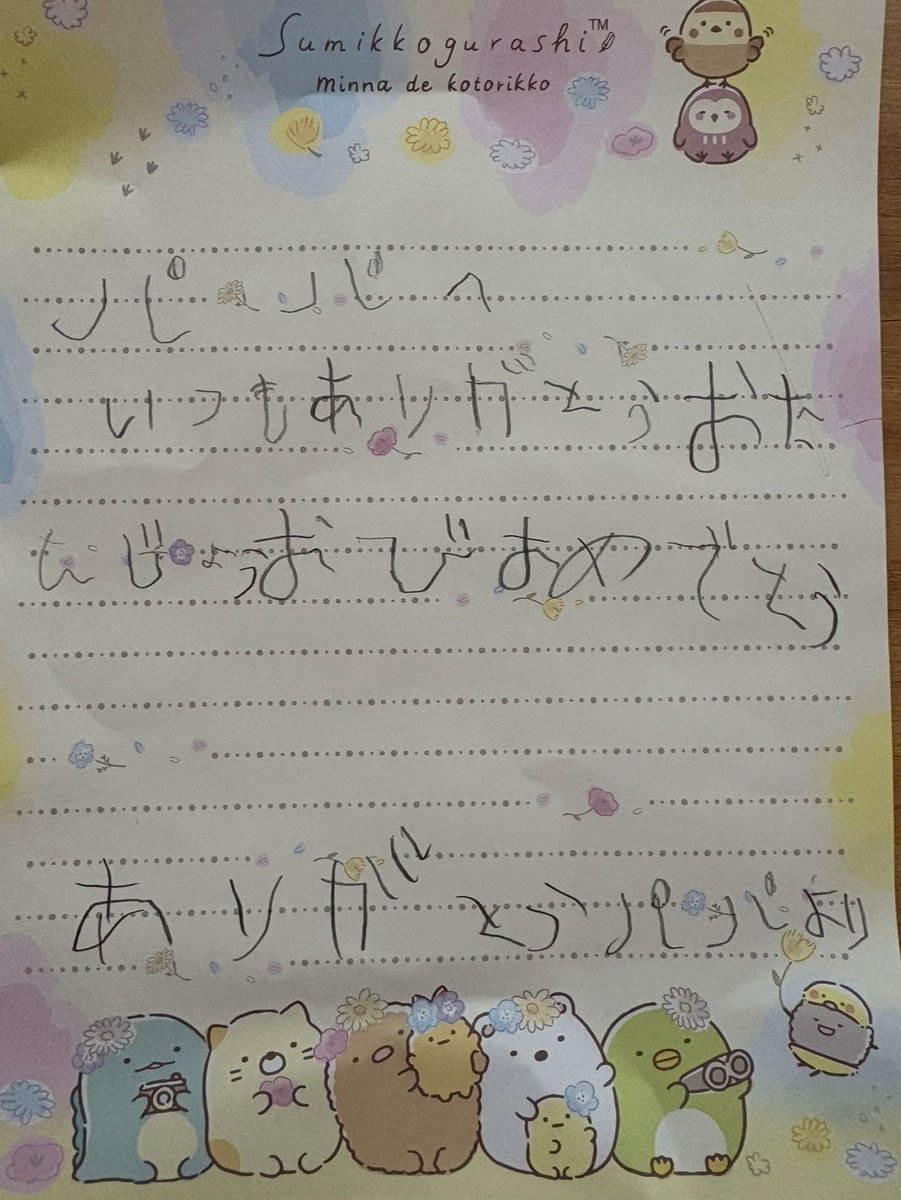 Sumikkogurashi™
minna de kotorikko
パパへ
いつもありがとうおた
んじょうおびおめでとう
ありがとうパパより